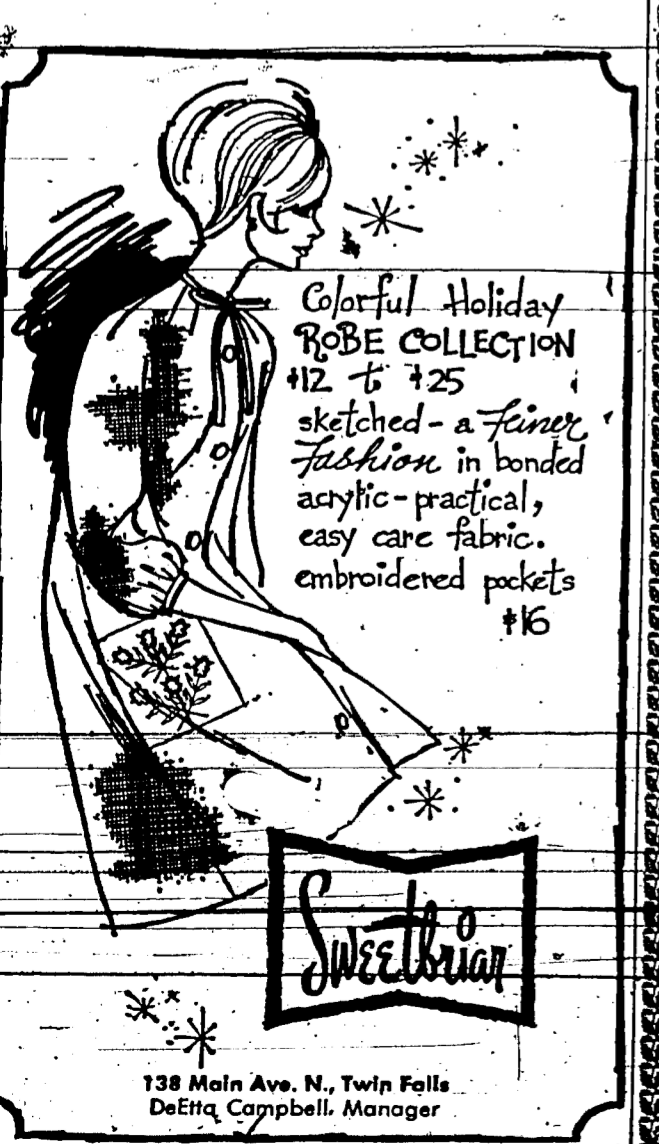 Colorful Holiday
ROBE COLLECTION
$12 to $25
sketched - a Feiner
Fashion in bonded
acrylic - practical,
easy care fabric.
embroidered pockets
$16
Sweetbriar
138 Main Ave. N., Twin Falls
DeEtta Campbell, Manager